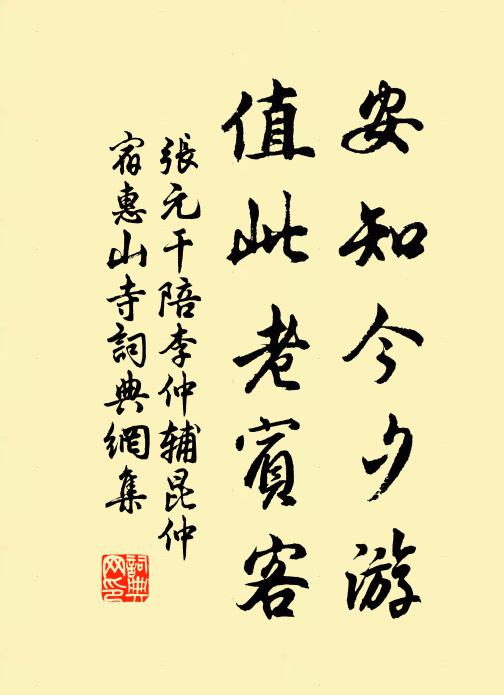 安知今夕游
值此老賓客
張元干陪李仲輔昆仲
宿惠山寺詞典網集
詞典網印